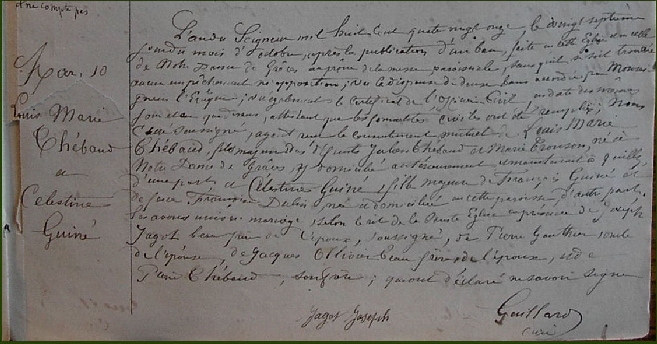 et ne compte pas
Mar. 10
Louis Marie
Thébaud
a
Celestine
Guiné
L'an du Seigneur mil huit cent quatre vingt onze le vingt septième
jour du mois d'Octobre, après la publication d'un ban, faite en cette église et en celle
de Notre Dame de Grâces au prône de la messe paroissiale, sans qu'il se soit trouvé
aucun empêchement ni opposition; vu la dispense de deux bans accordée par Monsei
gneur l'Evêque; vu également le certificat de l'Officier Civil en date des mêmes
jour et an que dessus, attestant que les formalités civiles ont été remplies; Nous
Curé soussigné, ayant reçu le consentement mutuel de Louis Marie
Thébaud, fils majeur de Jules Thébaud et Marie, né à
Notre Dame de Grâces, y domicilié
d'une part; et Celestine Guiné, fille majeure de François Guiné et
de Françoise, née et domiciliée en cette paroisse, d'autre part,
les avons unis en mariage, selon le rit de la Sainte Eglise en présence de Joseph
Jagot beau frère de l'époux, soussigné, de Pierre Gauthier oncle
de l'épouse, de Jacques Ollivier beau frère de l'époux, et de
Pierre Thébaud, son frère; qui ont déclaré ne savoir signer
Jagot Joseph
Gaillard
curé